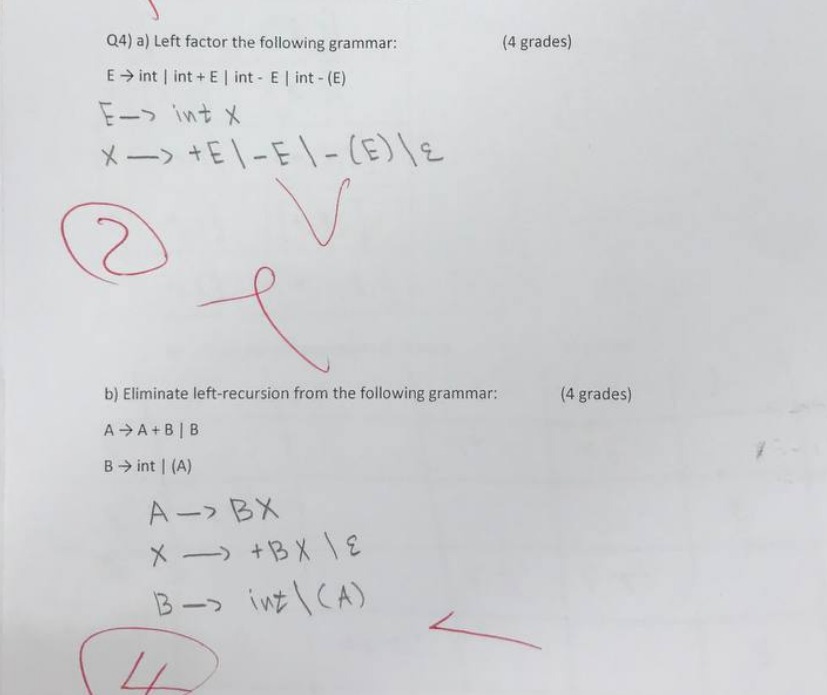 Q4) a) Left factor the following grammar: (4 grades)
E → int | int + E | int - E | int - (E)
E —> int X
X —> +E \ -E \ -(E) \ ε
2
b) Eliminate left-recursion from the following grammar: (4 grades)
A → A + B | B
B → int | (A)
A —> BX
X —> +BX \ ε
B —> int \ (A)
4